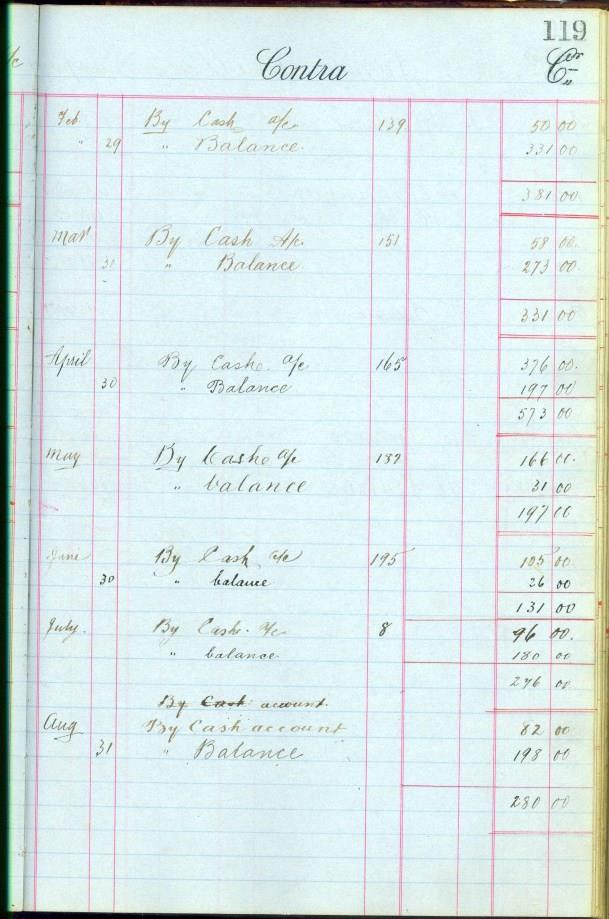 119
Contra Cr
Feb. By Cash a/c 139 50 00
" 29 " Balance 331 00
381 00
Mar By Cash A/c 151 58 00
31 " Balance 273 00
331 00
April By Cash a/c 165 376 00
30 " Balance 197 00
573 00
May By Cash a/c 166 00
" balance 31 00
197 00
June By Cash a/c 195 105 00
30 " balance 26 00
131 00
July. By Cash a/c 8 96 00
" balance 180 00
276 00
By Cash account.
Aug By Cash account 82 00
31 " Balance 198 00
280 00